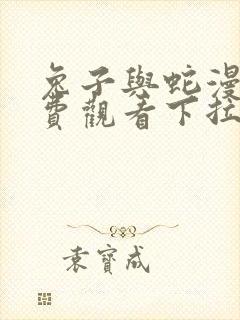 兔子與蛇漫
費觀看下拉
袁寶成